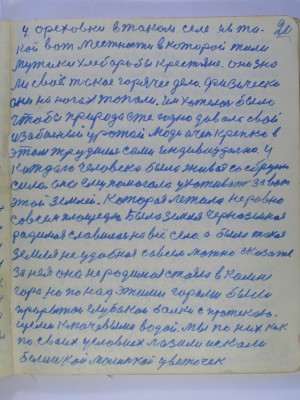 20
у ореховки в таком селе и в та-
кой вот местности в которой жили
мужики хлебаробы крестяне. они зна
ли своё такое горячее дело. физически
они на ногах топали. им хотелося было
чтобы природа ежегодно давала свой
изабильный урожай люди очен крепко в
этом трудилися сами индивидуално. у
каждого человека была живая собственая
сила она ему помогала ухаживать за вот
этой землей. Которая лежала неровно
совсем площадю была земля Чернозёмная
радимая славилася на всё село. а была такая
земля не удобная совсем можно сказать
за неё она не родимая стояла в Камне
гора но по над этими горами были
глубокаи балки с протекаю-
щими ключевыми водой. мы по них как
по своих условиях лазили искали
белинкой маленкой цветочек